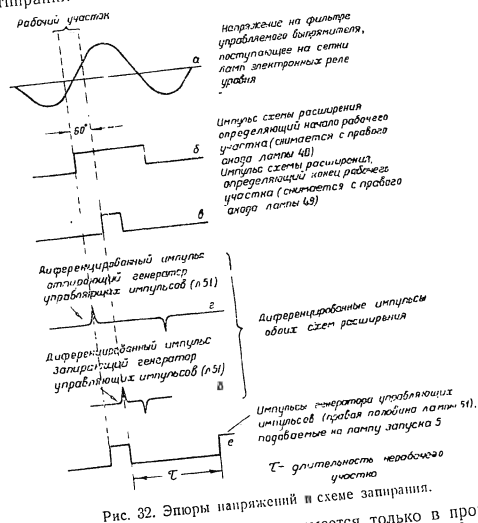 Рабочий участок
Напряжение на фильтре
управляемого выпрямителя,
поступающее на сетки
ламп электронных реле
уровня
а
60°
Импульс схемы расширения
определяющий начало рабочего
участка (снимается с правого
анода лампы 48)
б
Импульс схемы расширения,
определяющий конец рабочего
участка (снимается с правого
анода лампы 49)
в
Диференцированный импульс
отпирающий генератор
управляющих импульсов (л51)
г
Диференцированные импульсы
обоих схем расширения
Диференцированный импульс
запирающий генератор
управляющих импульсов (л51)
Импульсы генератора управляющих
импульсов (правая половина лампы 51),
подаваемые на лампу запуска 5
е
τ
τ - длительность нерабочего
участка
Рис. 32. Эпюры напряжений в схеме запирания.
только в